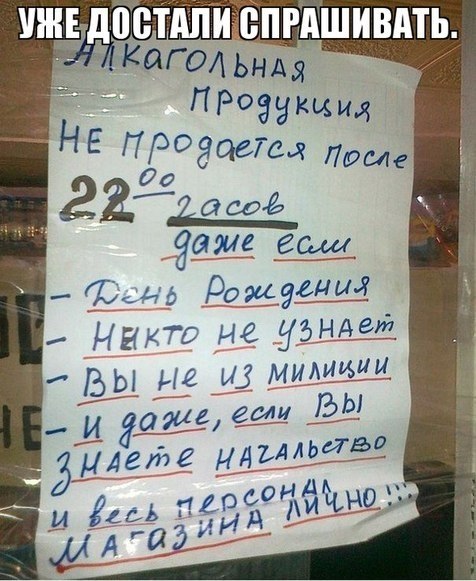 УЖЕ ДОСТАЛИ СПРАШИВАТЬ.
Алкагольная
продукция
НЕ продается после
22⁰⁰ часов
даже если
- День Рождения
- Никто не узнает
- ВЫ не из милиции
- и даже, если ВЫ
знаете начальство
и весь персонал
МАГАЗИНА лично!!!